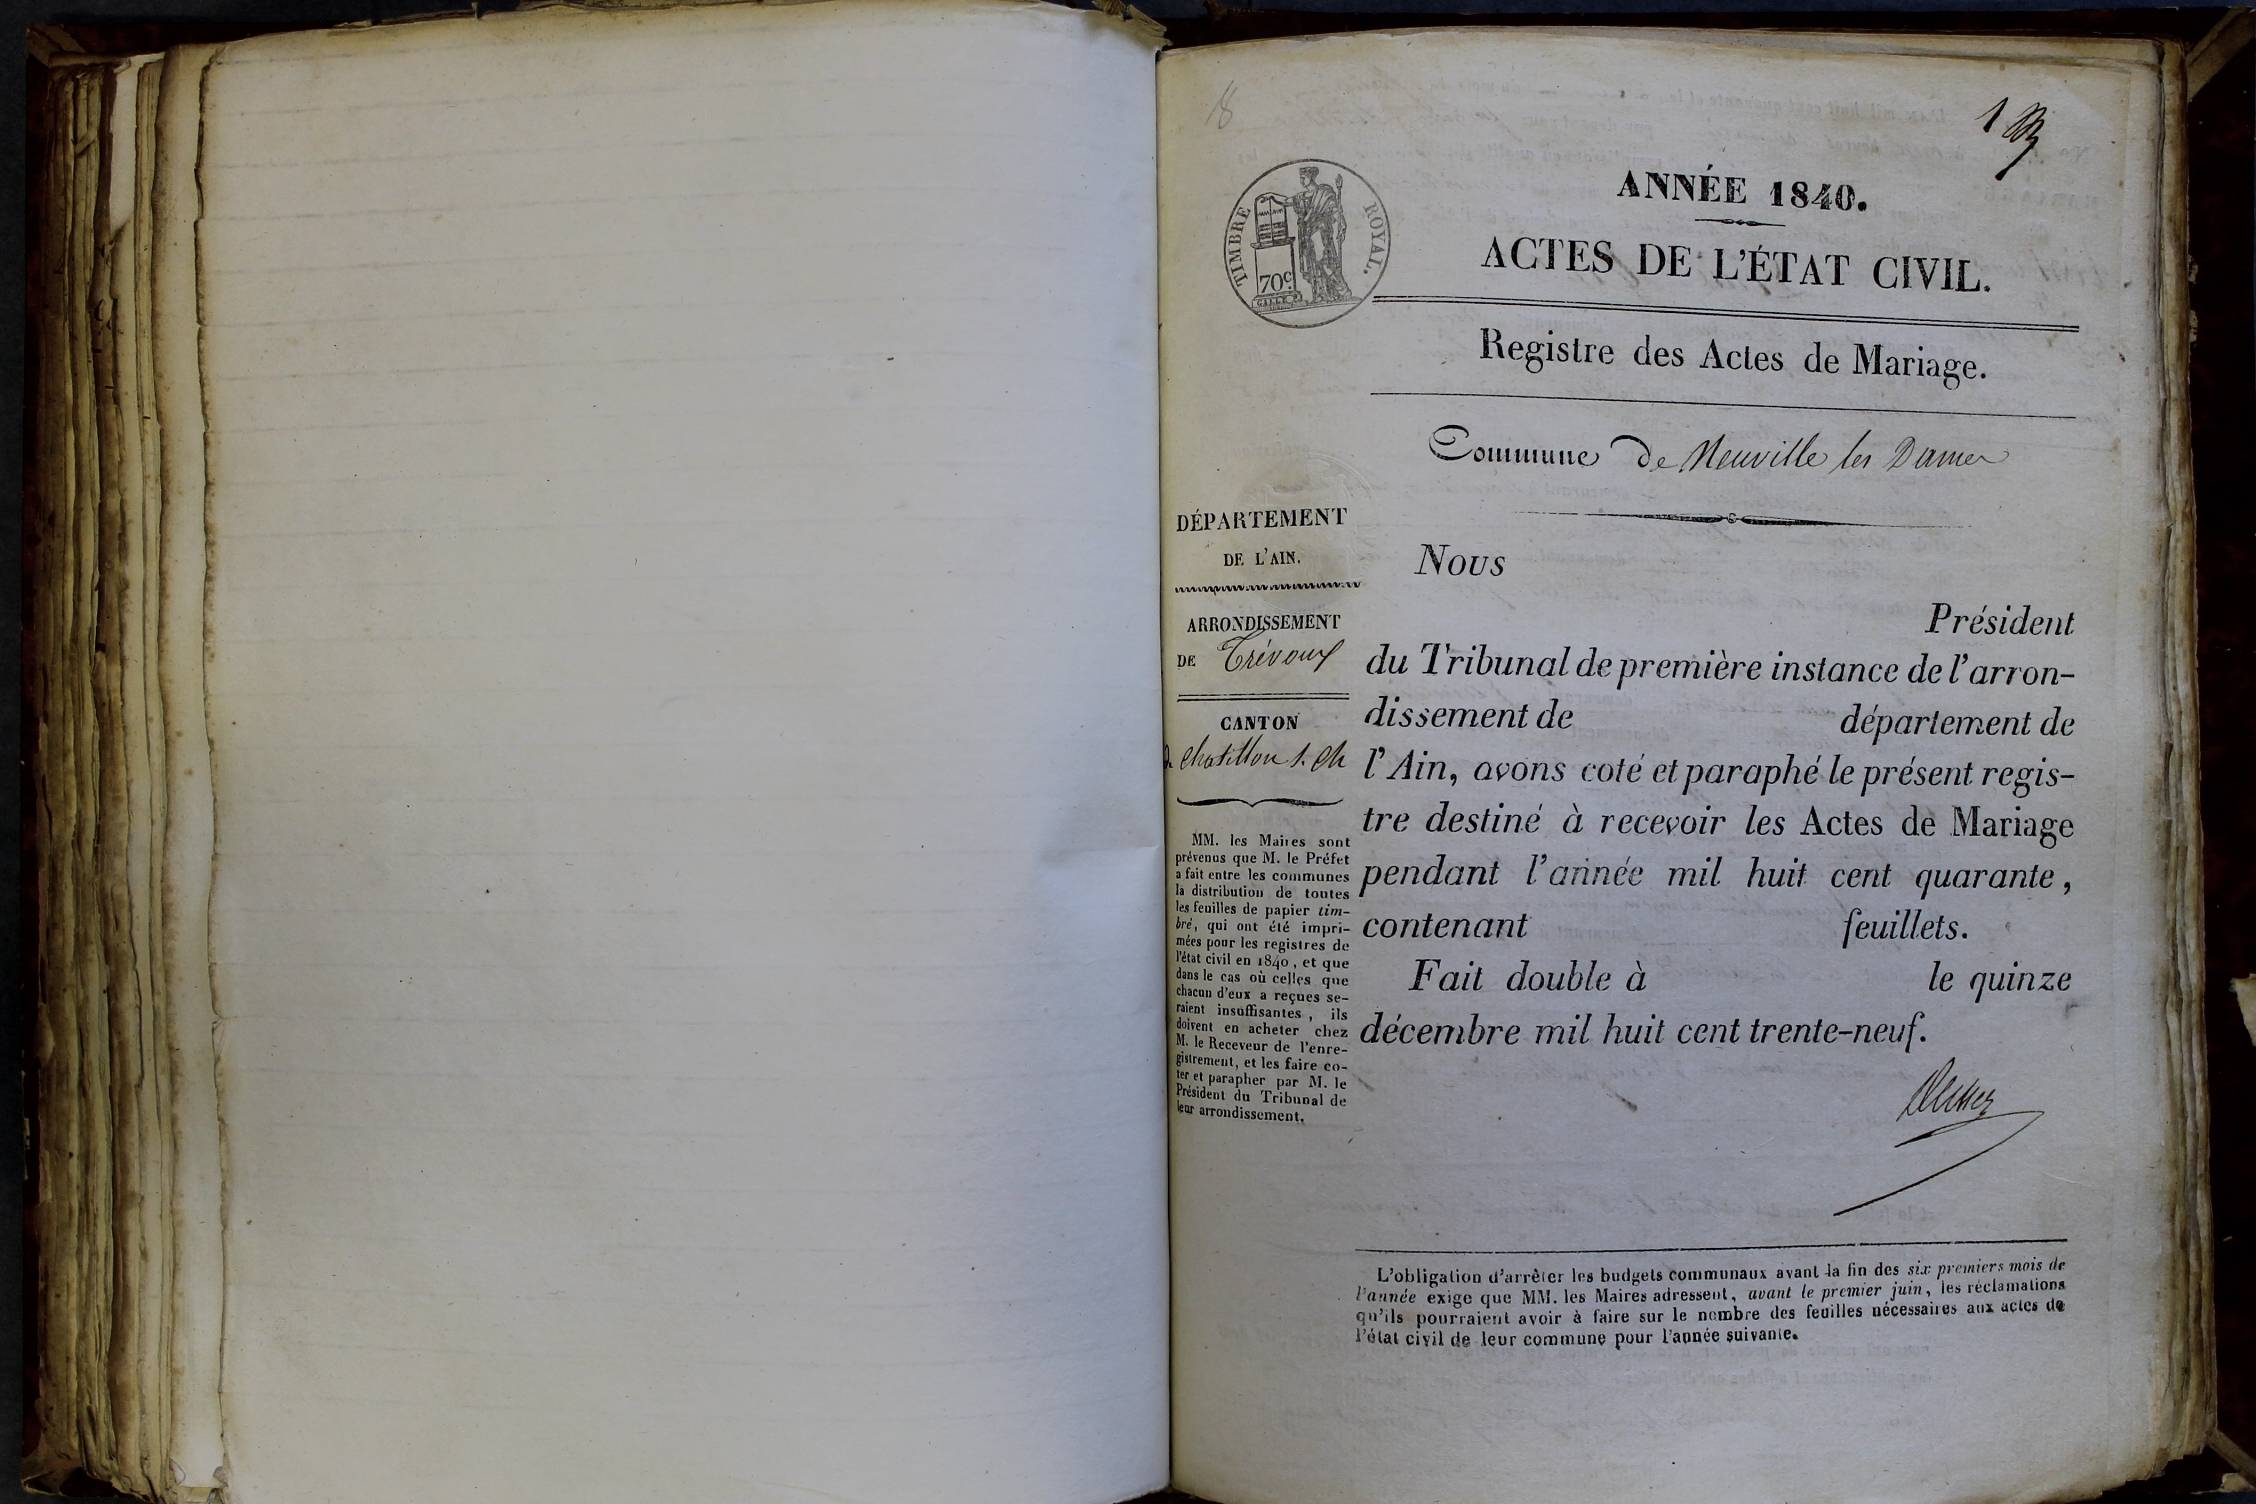 18
1
ANNÉE 1840.
TIMBRE ROYAL.
70c.
GALLE
ACTES DE L'ÉTAT CIVIL.
Registre des Actes de Mariage.
Commune de Neuville les Dames
DÉPARTEMENT
DE L'AIN.
ARRONDISSEMENT
DE Trévoux
CANTON
de Chatillon s. Ch
MM. les Maires sont
prévenus que M. le Préfet
a fait entre les communes
la distribution de toutes
les feuilles de papier tim-
bré, qui ont été impri-
mées pour les registres de
l'état civil en 1840, et que
dans le cas où celles que
chacun d'eux a reçues se-
raient insuffisantes, ils
doivent en acheter chez
M. le Receveur de l'enre-
gistrement, et les faire co-
ter et parapher par M. le
Président du Tribunal de
leur arrondissement.
Nous
Président
du Tribunal de première instance de l'arron-
dissement de département de
l'Ain, avons coté et paraphé le présent regis-
tre destiné à recevoir les Actes de Mariage
pendant l'année mil huit cent quarante,
contenant feuillets.
Fait double à le quinze
décembre mil huit cent trente-neuf.
L'obligation d'arrêter les budgets communaux avant la fin des six premiers mois de
l'année exige que MM. les Maires adressent, avant le premier juin, les réclamations
qu'ils pourraient avoir à faire sur le nombre des feuilles nécessaires aux actes de
l'état civil de leur commune pour l'année suivante.